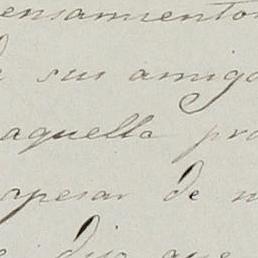 ensamientos
sus amigo
aquella pro
pesar de m
dijo que